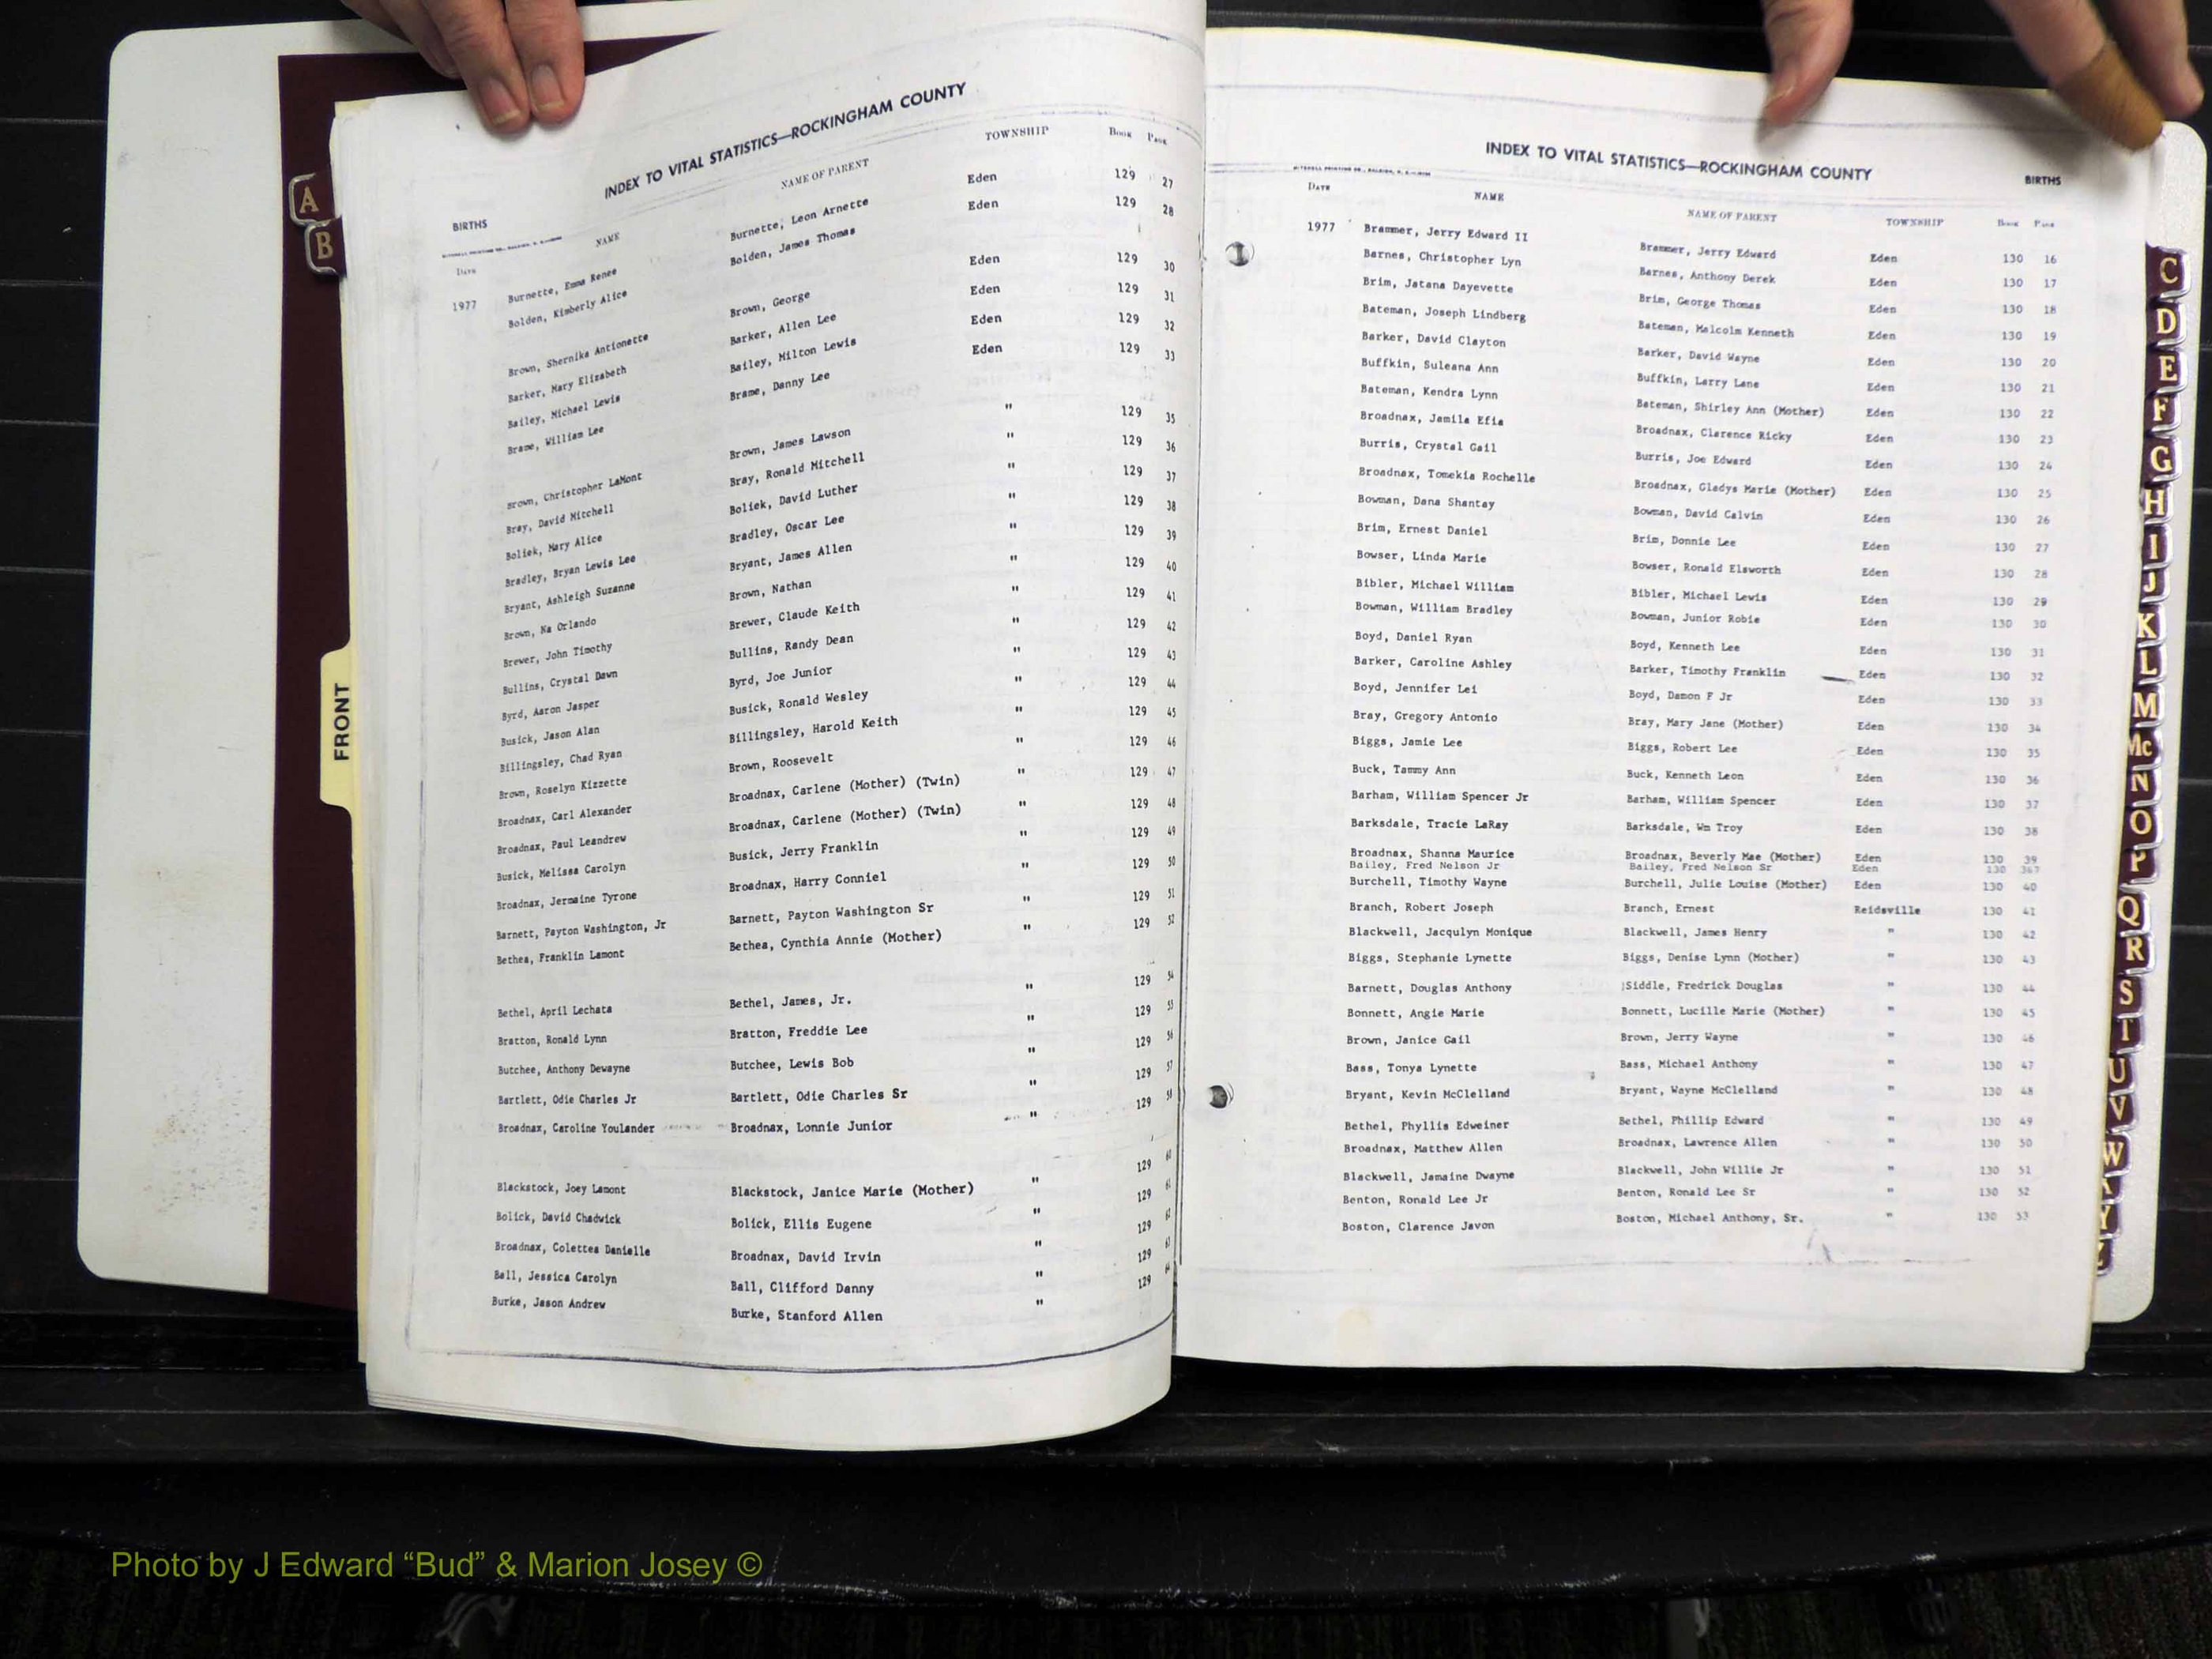 INDEX TO VITAL STATISTICS—ROCKINGHAM COUNTY
BIRTHS
Date NAME NAME OF PARENT TOWNSHIP Book Page
1977 Burnette, Emma Renee Burnette, Leon Arnette Eden 129 27
Bolden, Kimberly Alice Bolden, James Thomas Eden 129 28
Brown, Shernika Antionette Brown, George Eden 129 30
Barker, Mary Elizabeth Barker, Allen Lee Eden 129 31
Bailey, Michael Lewis Bailey, Milton Lewis Eden 129 32
Brame, William Lee Brame, Danny Lee Eden 129 33
Brown, Christopher LaMont Brown, James Lawson " 129 35
Bray, David Mitchell Bray, Ronald Mitchell " 129 36
Boliek, Mary Alice Boliek, David Luther " 129 37
Bradley, Bryan Lewis Lee Bradley, Oscar Lee " 129 38
Bryant, Ashleigh Suzanne Bryant, James Allen " 129 39
Brown, Na Orlando Brown, Nathan " 129 40
Brewer, John Timothy Brewer, Claude Keith " 129 41
Bullins, Crystal Dawn Bullins, Randy Dean " 129 42
Byrd, Aaron Jasper Byrd, Joe Junior " 129 43
Busick, Jason Alan Busick, Ronald Wesley " 129 44
Billingsley, Chad Ryan Billingsley, Harold Keith " 129 45
Brown, Roselyn Kizzette Brown, Roosevelt " 129 46
Broadnax, Carl Alexander Broadnax, Carlene (Mother) (Twin) " 129 47
Broadnax, Paul Leandrew Broadnax, Carlene (Mother) (Twin) " 129 48
Busick, Melissa Carolyn Busick, Jerry Franklin " 129 49
Broadnax, Jermaine Tyrone Broadnax, Harry Conniel " 129 50
Barnett, Payton Washington, Jr Barnett, Payton Washington Sr " 129 51
Bethea, Franklin Lamont Bethea, Cynthia Annie (Mother) " 129 52
Bethel, April Lechata Bethel, James, Jr. " 129 54
Bratton, Ronald Lynn Bratton, Freddie Lee " 129 55
Butchee, Anthony Dewayne Butchee, Lewis Bob " 129 56
Bartlett, Odie Charles Jr Bartlett, Odie Charles Sr " 129 57
Broadnax, Caroline Youlander Broadnax, Lonnie Junior " 129 58
Blackstock, Joey Lamont Blackstock, Janice Marie (Mother) " 129 60
Bolick, David Chadwick Bolick, Ellis Eugene " 129 61
Broadnax, Colettea Danielle Broadnax, David Irvin " 129 62
Ball, Jessica Carolyn Ball, Clifford Danny " 129 63
Burke, Jason Andrew Burke, Stanford Allen " 129 64
INDEX TO VITAL STATISTICS—ROCKINGHAM COUNTY
BIRTHS
Date NAME NAME OF PARENT TOWNSHIP Book Page
1977 Brammer, Jerry Edward II Brammer, Jerry Edward Eden 130 16
Barnes, Christopher Lyn Barnes, Anthony Derek Eden 130 17
Brim, Jatana Dayevette Brim, George Thomas Eden 130 18
Bateman, Joseph Lindberg Bateman, Malcolm Kenneth Eden 130 19
Barker, David Clayton Barker, David Wayne Eden 130 20
Buffkin, Suleana Ann Buffkin, Larry Lane Eden 130 21
Bateman, Kendra Lynn Bateman, Shirley Ann (Mother) Eden 130 22
Broadnax, Jamila Efia Broadnax, Clarence Ricky Eden 130 23
Burris, Crystal Gail Burris, Joe Edward Eden 130 24
Broadnax, Tomekia Rochelle Broadnax, Gladys Marie (Mother) Eden 130 25
Bowman, Dana Shantay Bowman, David Calvin Eden 130 26
Brim, Ernest Daniel Brim, Donnie Lee Eden 130 27
Bowser, Linda Marie Bowser, Ronald Elsworth Eden 130 28
Bibler, Michael William Bibler, Michael Lewis Eden 130 29
Bowman, William Bradley Bowman, Junior Robie Eden 130 30
Boyd, Daniel Ryan Boyd, Kenneth Lee Eden 130 31
Barker, Caroline Ashley Barker, Timothy Franklin Eden 130 32
Boyd, Jennifer Lei Boyd, Damon F Jr Eden 130 33
Bray, Gregory Antonio Bray, Mary Jane (Mother) Eden 130 34
Biggs, Jamie Lee Biggs, Robert Lee Eden 130 35
Buck, Tammy Ann Buck, Kenneth Leon Eden 130 36
Barham, William Spencer Jr Barham, William Spencer Eden 130 37
Barksdale, Tracie LaRay Barksdale, Wm Troy Eden 130 38
Broadnax, Shanna Maurice Broadnax, Beverly Mae (Mother) Eden 130 39
Bailey, Fred Nelson Jr Bailey, Fred Nelson Sr Eden 130 367
Burchell, Timothy Wayne Burchell, Julie Louise (Mother) Eden 130 40
Branch, Robert Joseph Branch, Ernest Reidsville 130 41
Blackwell, Jacqulyn Monique Blackwell, James Henry " 130 42
Biggs, Stephanie Lynette Biggs, Denise Lynn (Mother) " 130 43
Barnett, Douglas Anthony Siddle, Fredrick Douglas " 130 44
Bonnett, Angie Marie Bonnett, Lucille Marie (Mother) " 130 45
Brown, Janice Gail Brown, Jerry Wayne " 130 46
Bass, Tonya Lynette Bass, Michael Anthony " 130 47
Bryant, Kevin McClelland Bryant, Wayne McClelland " 130 48
Bethel, Phyllis Edweiner Bethel, Phillip Edward " 130 49
Broadnax, Matthew Allen Broadnax, Lawrence Allen " 130 50
Blackwell, Jamaine Dwayne Blackwell, John Willie Jr " 130 51
Benton, Ronald Lee Jr Benton, Ronald Lee Sr " 130 52
Boston, Clarence Javon Boston, Michael Anthony, Sr. " 130 53
A
B
FRONT
C
D
E
F
G
H
I
J
K
L
M
Mc
N
O
P
Q
R
S
T
U
V
W
Y
Photo by J Edward “Bud” & Marion Josey ©